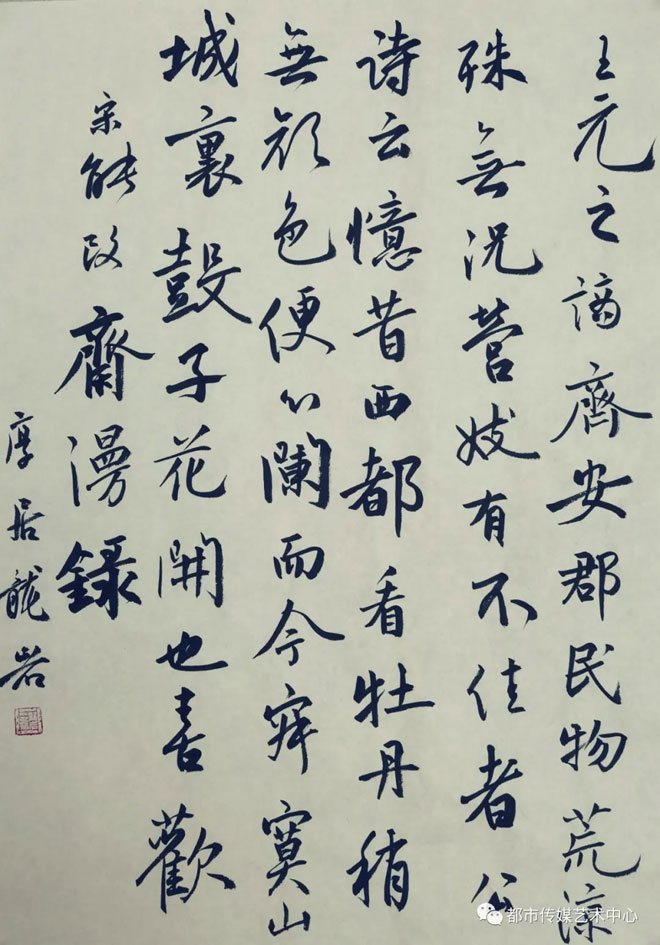 王元之谪齊安郡民物荒涼
殊無况营妓有不佳者公
诗云憶昔西都看牡丹稍
無颜色便心闌而今寂寞山
城裏鼓子花開也喜歡
宋能改齋漫錄
厚居龍岩
都市传媒艺术中心